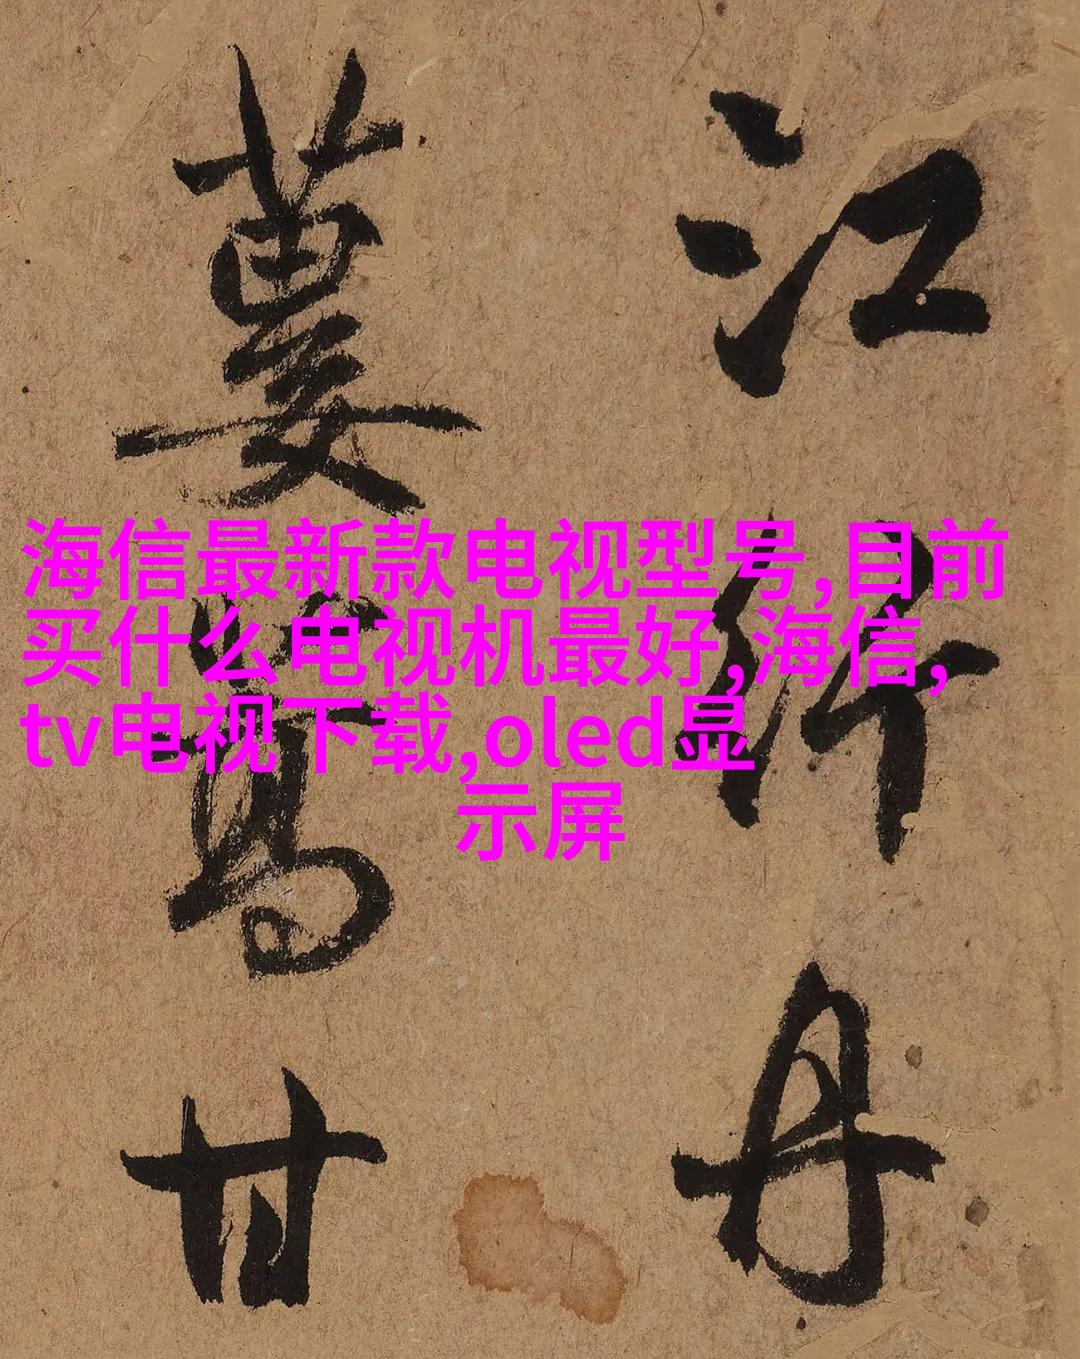 海信最新款电视型号,目前
买什么电视机最好,海信,
tv电视下载,oled显
示屏
江 丹
蔞 甘